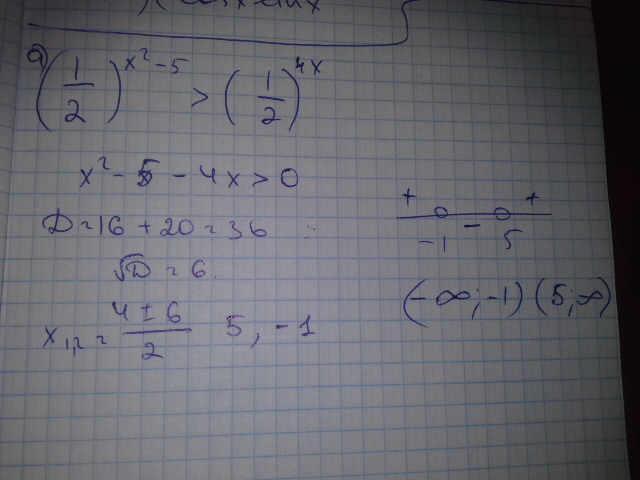 а) (1/2)^(x² - 5) > (1/2)^(4x)
x² - 5 - 4x > 0
D = 16 + 20 = 36
√D = 6.
x₁,₂ = (4 ± 6)/2   5; -1
+ - +
-1 5
(-∞; -1) (5; ∞)